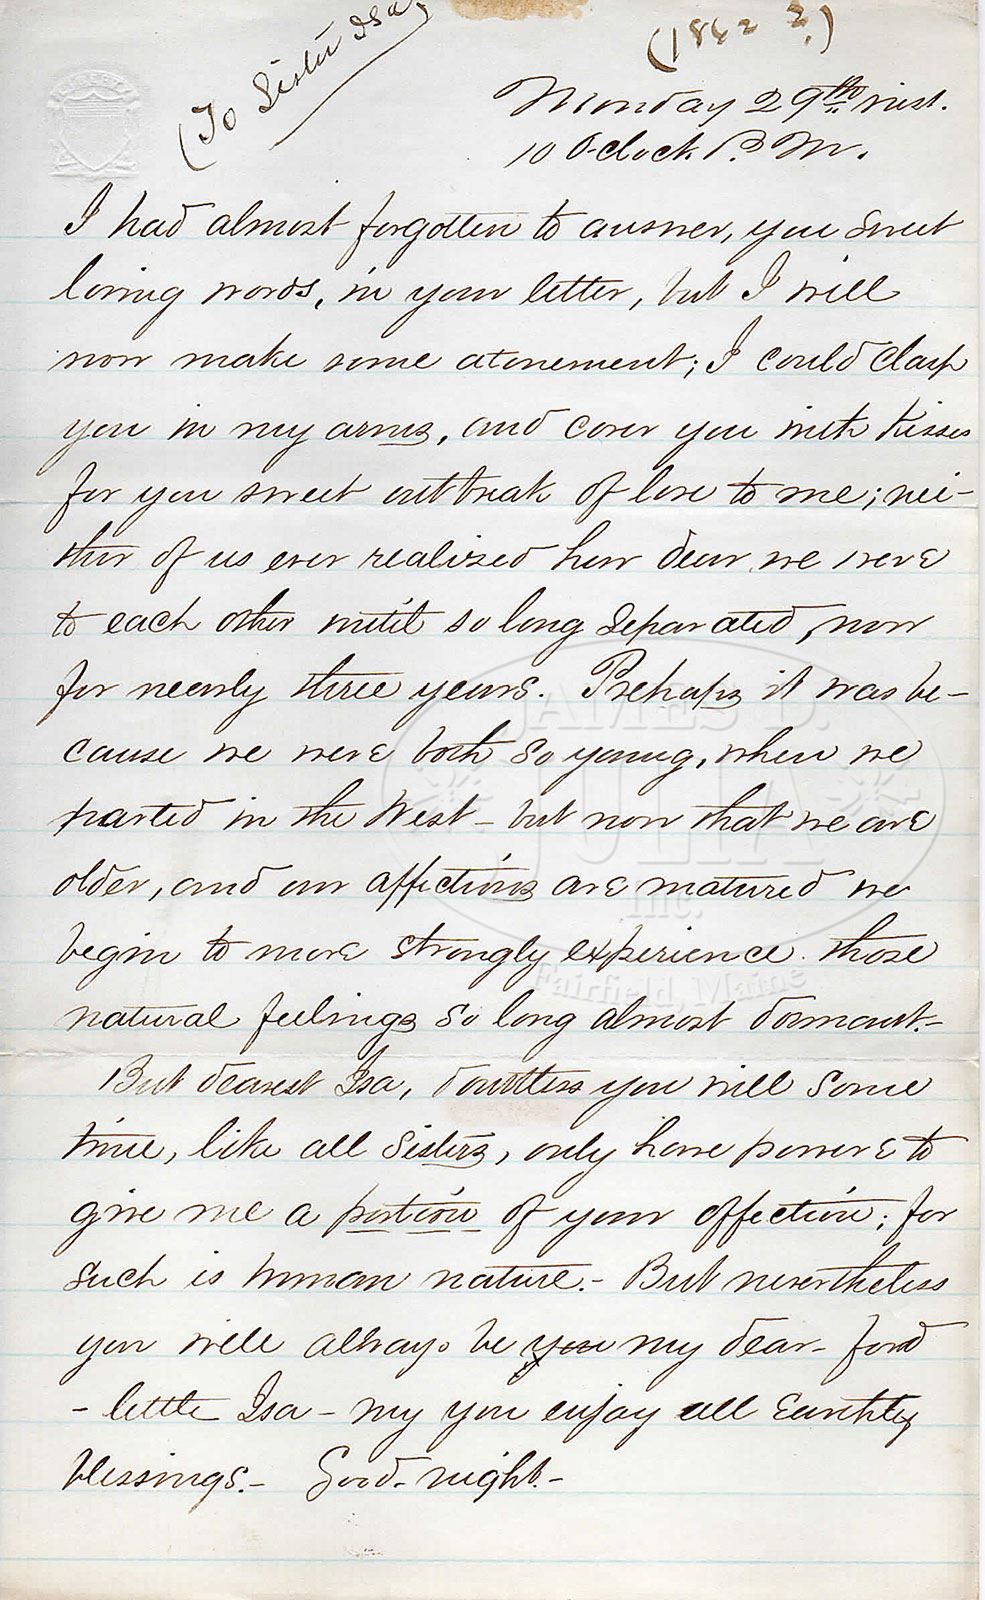 (1862 ?)
(To Sister Isa,
Monday 29th inst.
10 O-clock P. M.
I had almost forgotten to answer, you sweet
loving words, in your letter, but I will
now make some atonement; I could clasp
you in my arms, and cover you with kisses
for you sweet outbreak of love to me; nei-
ther of us ever realized how dear we were
to each other until so long separated, now
for nearly three years. Prehaps it was be-
cause we were both so young, when we
parted in the West - but now that we are
older, and our affections are matured we
begin to more strongly experience those
natural feelings so long almost dormant.-
But dearest Isa, doubtless you will some
time, like all sisters, only have power to
give me a portion of your affection; for
such is human nature.- But nevertheless
you will always be you my dear- fond
- little Isa - my you enjoy all Earthly
blessings.- Good-night.-
JAMES D.
JULIA
Inc.
Fairfield, Maine